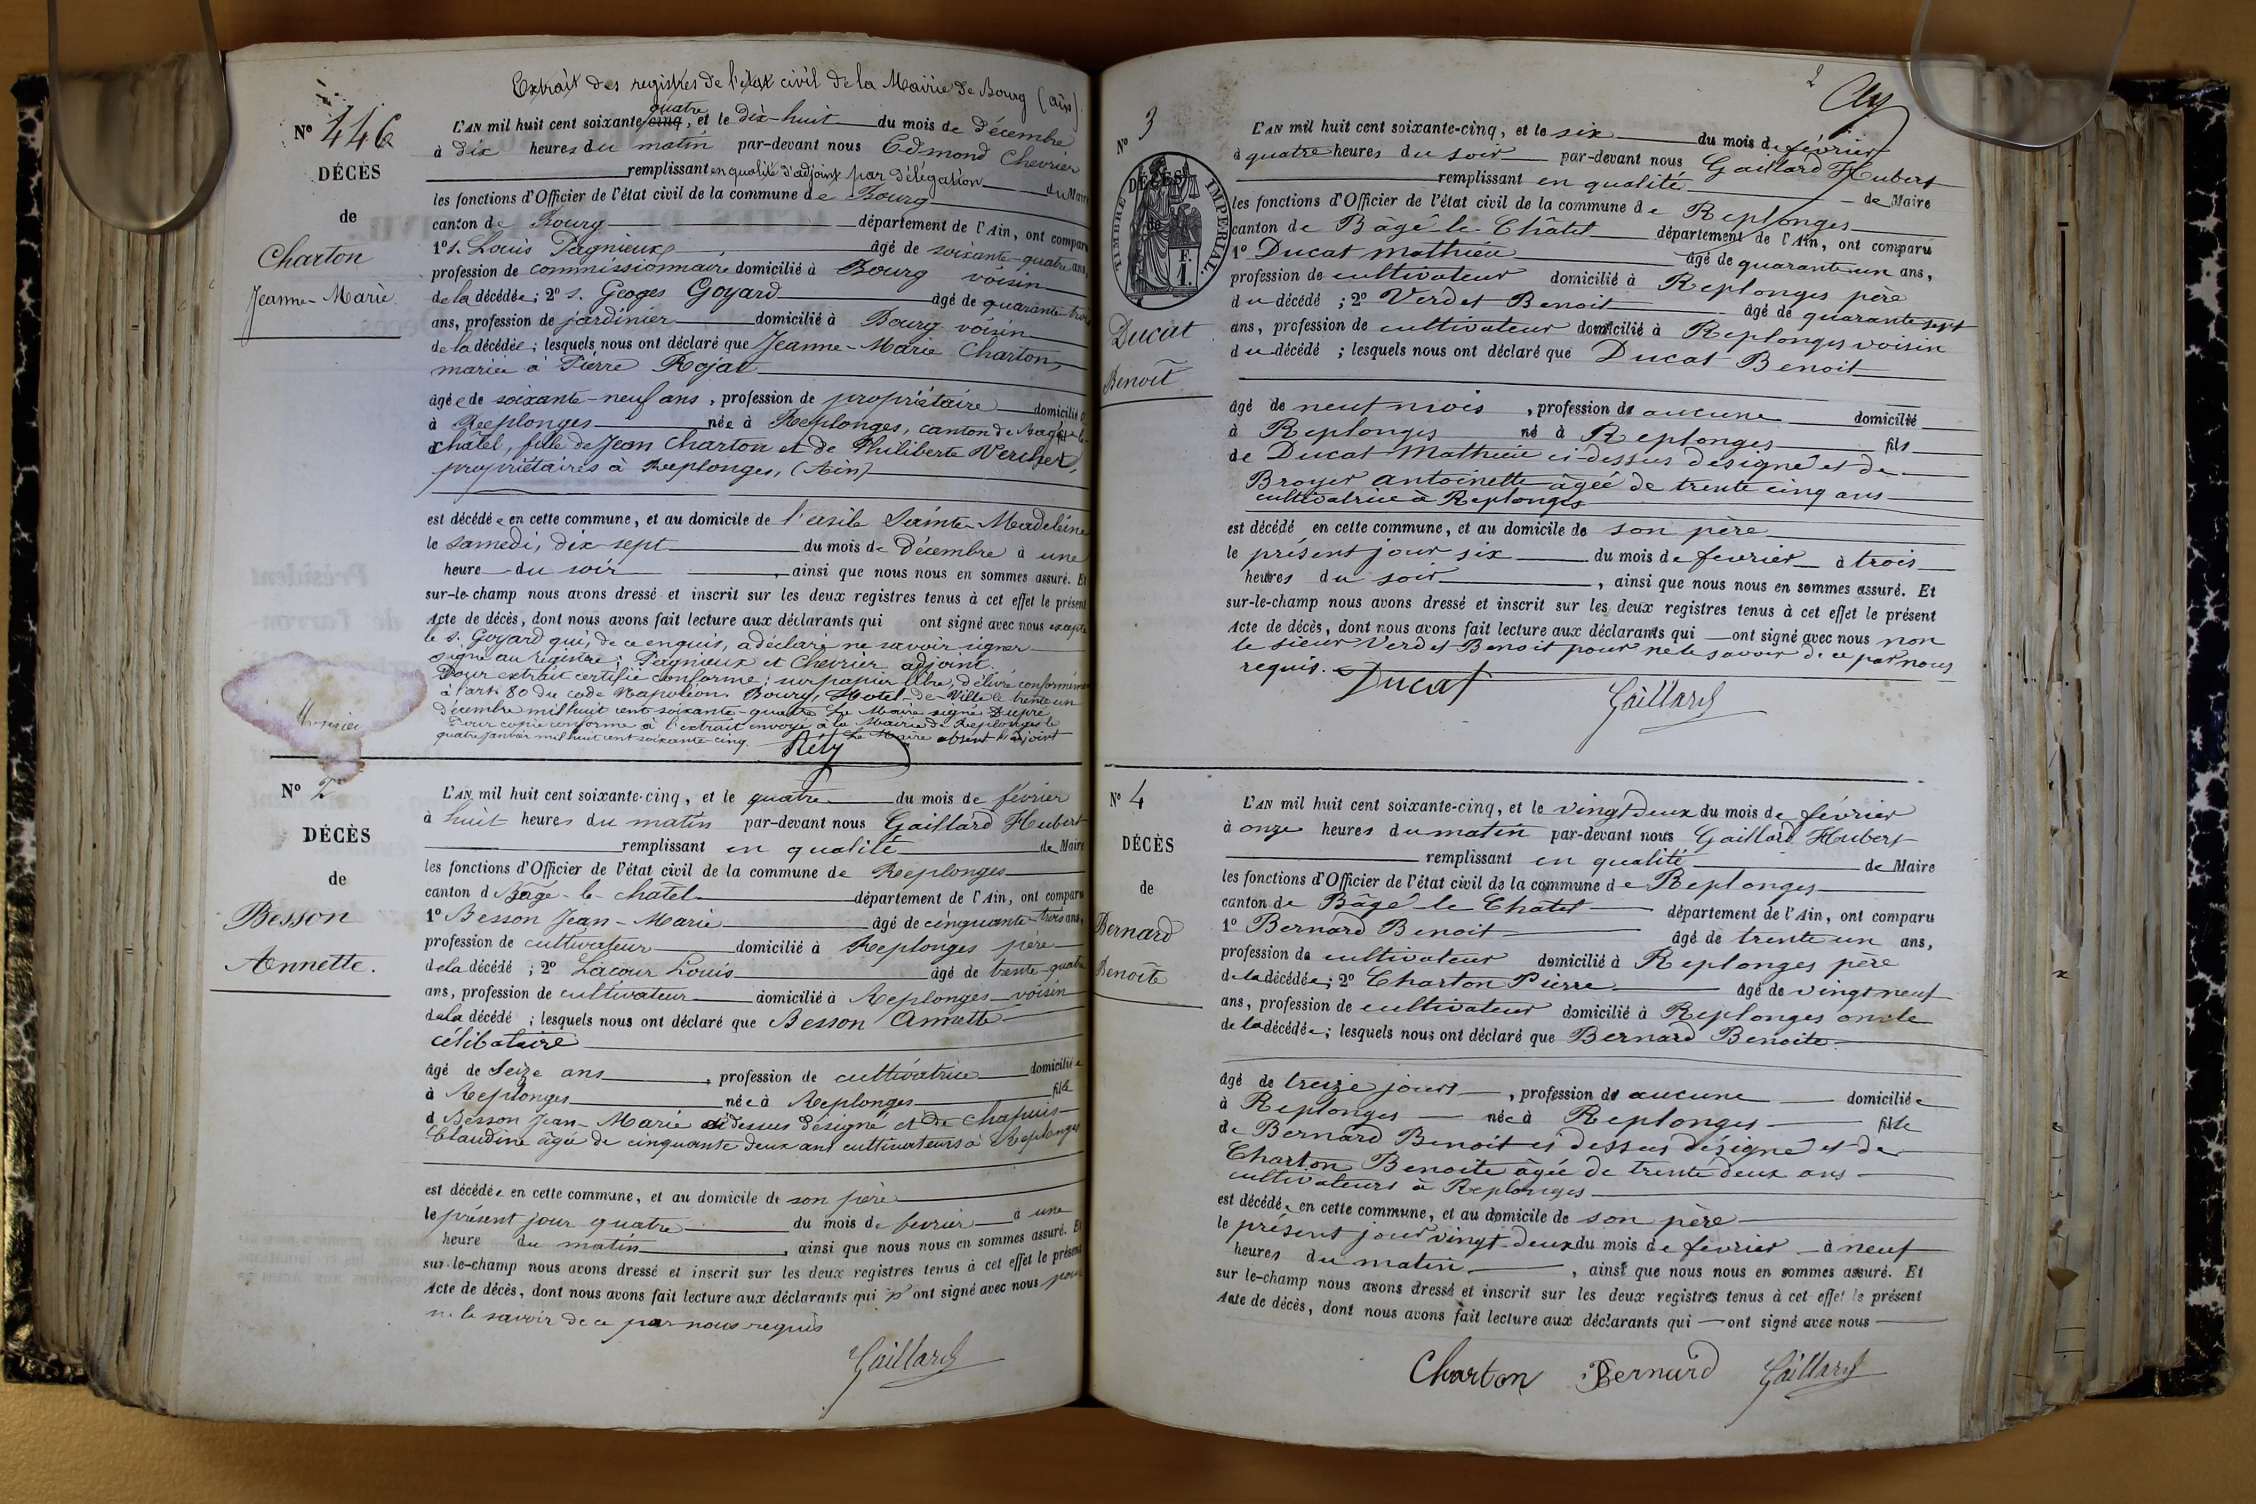 Extrait des registres de l'état civil de la Mairie de Bourg (Ain).
N° 446
DÉCÈS
de
Charton
Jeanne-Marie.
quatre
L'AN mil huit cent soixante-cinq, et le dix-huit du mois de Décembre
à dix heures du matin par-devant nous Edmond Chevrier
remplissant en qualité d'adjoint par délégation du Maire
les fonctions d'Officier de l'état civil de la commune de Bourg
canton de Bourg département de l'Ain, ont comparu
1° s. Louis Pagnieux âgé de soixante-quatre ans,
profession de commissionnaire domicilié à Bourg voisin
de la décédée; 2° s. Geoges Goyard âgé de quarante-trois
ans, profession de jardinier domicilié à Bourg voisin
de la décédée; lesquels nous ont déclaré que Jeanne-Marie Charton,
mariée à Pierre Rojat
âgée de soixante-neuf ans, profession de propriétaire domiciliée
à Replonges née à Replonges, canton de Bagé-le-
châtel, fille de Jean Charton et de Philiberte Vercher,
propriétaires à Replonges, (Ain)
est décédée en cette commune, et au domicile de l'asile Sainte-Madeleine
le samedi, dix-sept du mois de Décembre à une
heure du soir, ainsi que nous nous en sommes assuré. Et
sur-le-champ nous avons dressé et inscrit sur les deux registres tenus à cet effet le présent
Acte de décès, dont nous avons fait lecture aux déclarants qui ont signé avec nous excepté
le s. Goyard qui, de ce enquis, a déclaré ne savoir signer
signé au registre; Pagnieux et Chevrier adjoint.
Pour extrait certifié conforme; sur papier libre, délivré conformément
à l'art. 80 du code Napoléon. Bourg, Hotel-de-Ville le trente un
Décembre mil huit cent soixante-quatre Le Maire signé Dupré
Pour copie conforme à l'extrait envoyé à la Mairie de Replonges le
quatre Janvier mil huit cent soixante cinq. Le Maire absent l'adjoint
Réty
N° 2
DÉCÈS
de
Besson
Annette.
L'AN mil huit cent soixante-cinq, et le quatre du mois de février
à huit heures du matin par-devant nous Gaillard Hubert
remplissant en qualité de Maire
les fonctions d'Officier de l'état civil de la commune de Replonges
canton d Bâgé-le-chatel département de l'Ain, ont comparu
1° Besson Jean-Marie âgé de cinquante-trois ans,
profession de cultivateur domicilié à Replonges père
de la décédé; 2° Lacour Louis âgé de trente-quatre
ans, profession de cultivateur domicilié à Replonges voisin
de la décédé; lesquels nous ont déclaré que Besson Annette
célibataire
âgé de Seize ans, profession de cultivatrice domiciliée
à Replonges née à Replonges fille
d Besson Jean-Marie ci dessus désigné et de Chapuis
Claudine âgée de cinquante deux ans cultivateurs à Replonges
est décédée en cette commune, et au domicile de son père
le présent jour quatre du mois de février à une
heure du matin, ainsi que nous nous en sommes assuré. Et
sur-le-champ nous avons dressé et inscrit sur les deux registres tenus à cet effet le présent
Acte de décès, dont nous avons fait lecture aux déclarants qui n'ont signé avec nous pour
ne le savoir de ce par nous requis
Gaillard
2
N° 3
TIMBRE IMPÉRIAL.
1 F.
DÉCÈS
de
Ducat
Benoît
L'AN mil huit cent soixante-cinq, et le six du mois de février
à quatre heures du soir par-devant nous Gaillard Hubert
remplissant en qualité de Maire
les fonctions d'Officier de l'état civil de la commune de Replonges
canton de Bâgé le Châtel département de l'Ain, ont comparu
1° Ducat Mathieu âgé de quarante un ans,
profession de cultivateur domicilié à Replonges père
du décédé; 2° Verdet Benoit âgé de quarante sept
ans, profession de cultivateur domicilié à Replonges voisin
du décédé; lesquels nous ont déclaré que Ducat Benoit
âgé de neuf mois, profession de aucune domicilié
à Replonges né à Replonges fils
de Ducat Mathieu ci-dessus désigné et de
Broyer antoinette âgée de trente cinq ans
cultivatrice à Replonges
est décédé en cette commune, et au domicile de son père
le présent jour six du mois de fevrier à trois
heures du soir, ainsi que nous nous en sommes assuré. Et
sur-le-champ nous avons dressé et inscrit sur les deux registres tenus à cet effet le présent
Acte de décès, dont nous avons fait lecture aux déclarants qui ont signé avec nous non
le sieur Verdet Benoit pour ne le savoir de ce par nous
requis. Ducat
Gaillard
N° 4
DÉCÈS
de
Bernard
Benoîte
L'AN mil huit cent soixante-cinq, et le vingt deux du mois de février
à onze heures du matin par-devant nous Gaillard Hubert
remplissant en qualité de Maire
les fonctions d'Officier de l'état civil de la commune de Replonges
canton de Bâgé le Châtel département de l'Ain, ont comparu
1° Bernard Benoit âgé de trente un ans,
profession de cultivateur domicilié à Replonges père
de la décédée; 2° Charton Pierre âgé de vingt neuf
ans, profession de cultivateur domicilié à Replonges oncle
de la décédée; lesquels nous ont déclaré que Bernard Benoite
âgé de treize jours, profession de aucune domiciliée
à Replonges née à Replonges fille
de Bernard Benoit ci dessus désigné et de
Charton Benoite âgée de trente deux ans
cultivateurs à Replonges
est décédée en cette commune, et au domicile de son père
le présent jour vingt-deux du mois de fevrier à neuf
heures du matin, ainsi que nous nous en sommes assuré. Et
sur le-champ nous avons dressé et inscrit sur les deux registres tenus à cet effet le présent
Acte de décès, dont nous avons fait lecture aux déclarants qui ont signé avec nous
Charton Bernard Gaillard